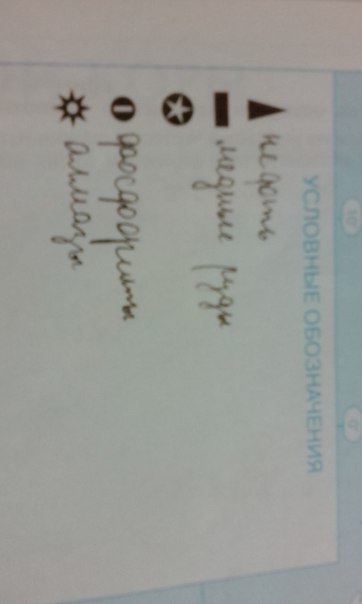 УСЛОВНЫЕ ОБОЗНАЧЕНИЯ
нефть
медные руды
фосфориты
алмазы